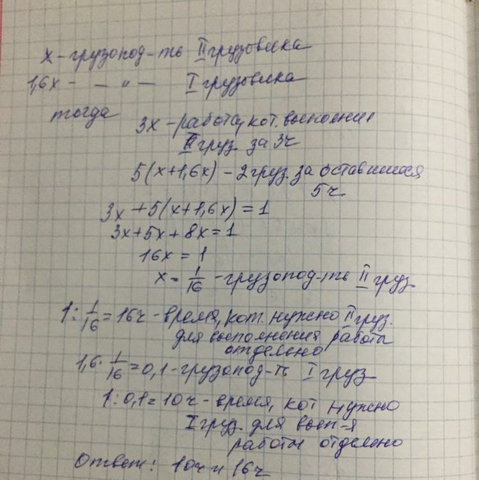 x - грузопод-ть II грузовика
1,6x - — " — I грузовика
тогда
3x - работа, кот. выполнил
II груз. за 3ч
5(x+1,6x) - 2 груз. за оставшиеся
5ч
3x + 5(x+1,6x) = 1
3x+5x+8x=1
16x = 1
x = 1/16 - грузопод-ть II груз.
1 : 1/16 = 16ч - время, кот. нужно II груз.
для выполнения работы
отделено
1,6 · 1/16 = 0,1 - грузопод-ть I груз
1 : 0,1 = 10ч - время, кот нужно
I груз. для вып-я
работы отделено
Ответ: 10ч и 16ч